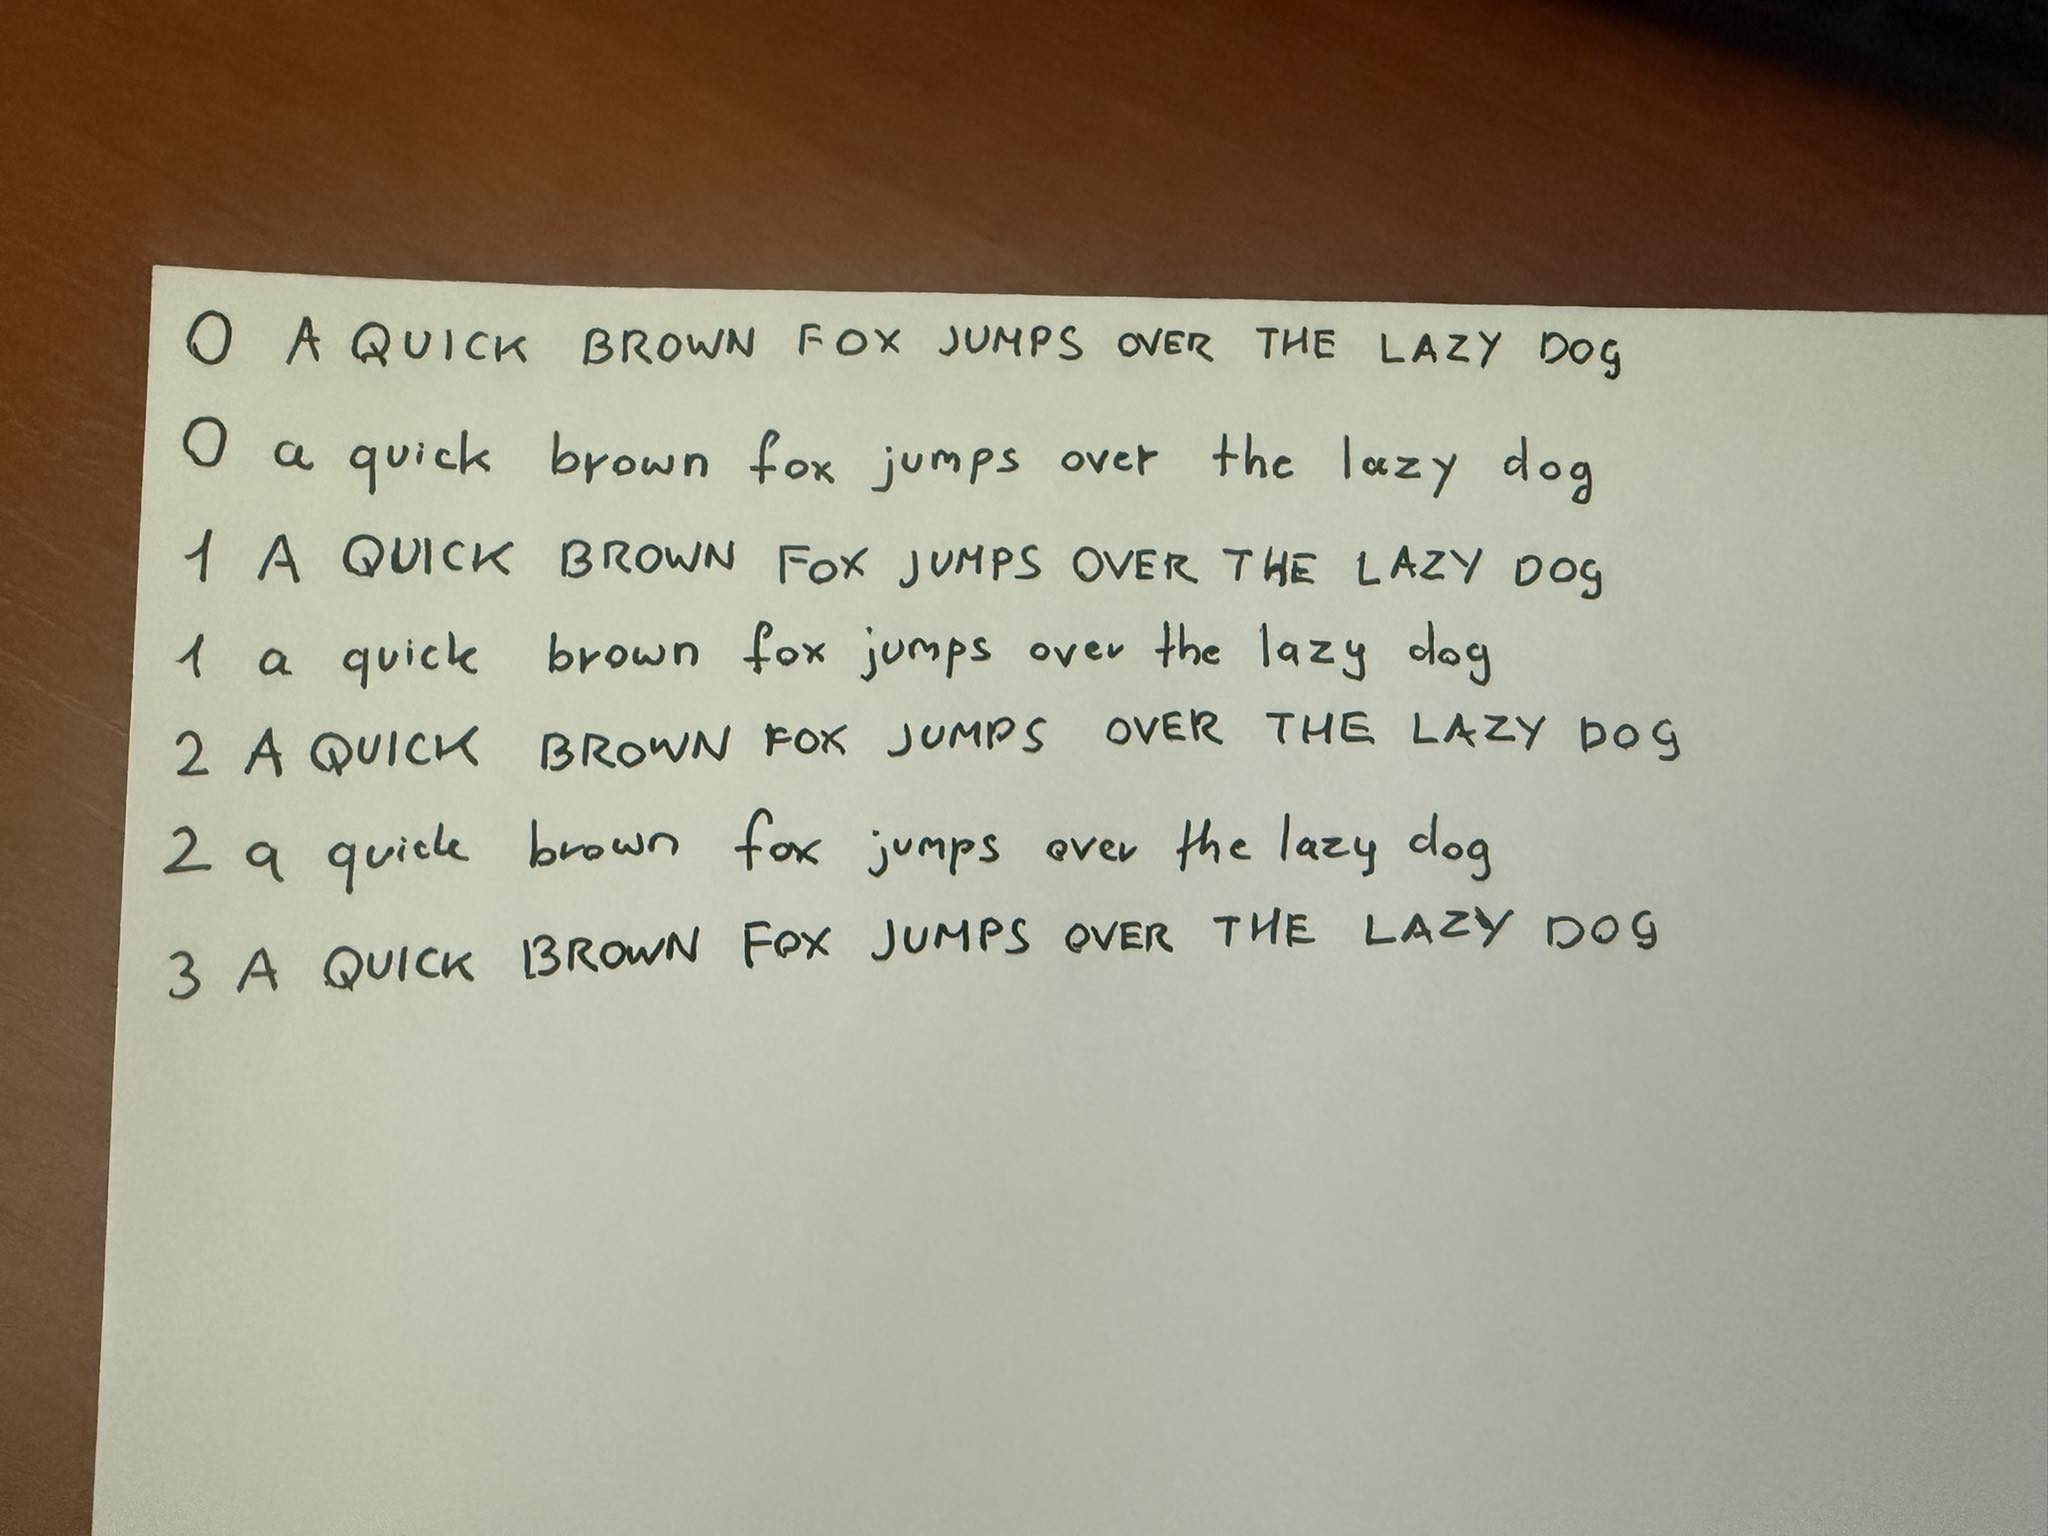 0 A QUICK BROWN FOX JUMPS OVER THE LAZY DOG
0 a quick brown fox jumps over the lazy dog
1 A QUICK BROWN FOX JUMPS OVER THE LAZY DOG
1 a quick brown fox jumps over the lazy dog
2 A QUICK BROWN FOX JUMPS OVER THE LAZY DOG
2 a quick brown fox jumps over the lazy dog
3 A QUICK BROWN FOX JUMPS OVER THE LAZY DOG